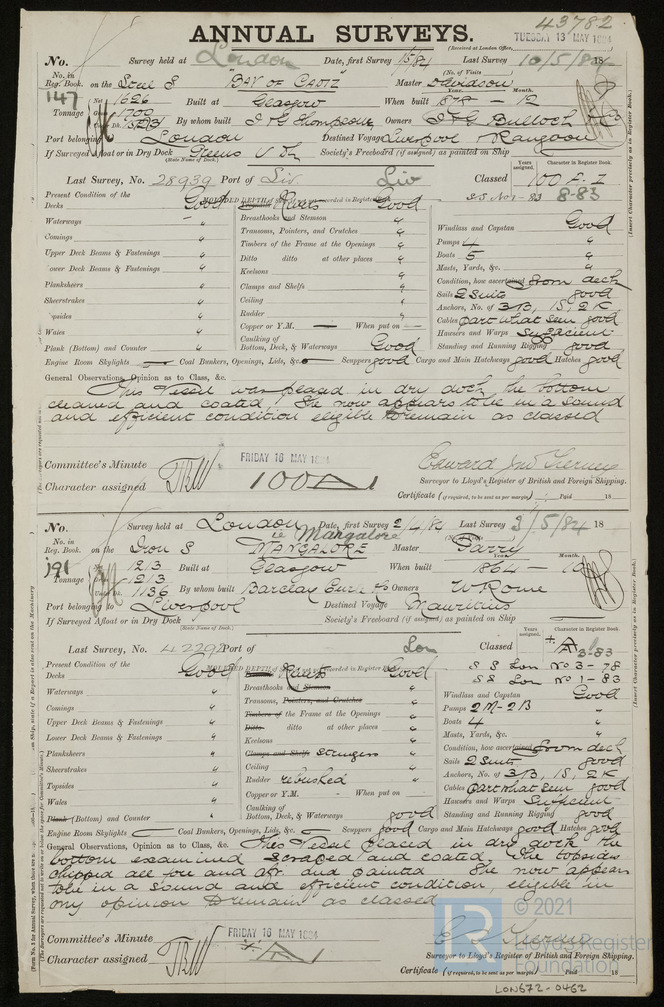 43782
ANNUAL SURVEYS.
(Received at London Office,
TUESDAY 13 MAY 1884
No. Survey held at London Date, first Survey 1/5/84 Last Survey 10/5/84 18
No. in Reg. Book. on the S "BAY OF CADIZ" Master Davidson
(No. of Visits
147 Net 1626 Built at Glasgow When built 1878 - 12
Year. Month.
Tonnage Gross 1700 By whom built J & G Thompson Owners J & G Bulloch & Co
Port belonging to London Destined Voyage Liverpool Rangoon
If Surveyed Afloat or in Dry Dock Greens U Dk Society's Freeboard (if assigned) as painted on Ship
(State Name of Dock.)
Last Survey, No. 28939 Port of Liv Liv Classed 100 A.1
Years assigned. Character in Register Book.
SS No 1 - 83 8-83
Present Condition of the
Decks Good Rivets Good
Waterways " Breasthooks and Stemson "
Comings " Transoms, Pointers, and Crutches "
Upper Deck Beams & Fastenings " Timbers of the Frame at the Openings "
Lower Deck Beams & Fastenings " Ditto ditto at other places "
Planksheers " Keelsons "
Sheerstrakes " Clamps and Shelfs "
Topsides " Ceiling "
Wales " Rudder "
Plank (Bottom) and Counter " Copper or Y.M. — When put on —
Caulking of Bottom, Deck, & Waterways Good
Windlass and Capstan Good
Pumps 4 "
Boats 5 "
Masts, Yards, &c. "
Condition, how ascertained from deck
Sails 2 Suits good
Anchors, No. of 3B, 1S, 2K
Cables part what seen good
Hawsers and Warps Sufficient
Standing and Running Rigging good
Engine Room Skylights — Coal Bunkers, Openings, Lids, &c. — Scuppers good Cargo and Main Hatchways good Hatches good
General Observations, Opinion as to Class, &c.
This Vessel was placed in dry dock, the bottom
cleaned and coated. She now appears to be in a sound
and efficient condition eligible to remain as classed
Committee's Minute FRIDAY 16 MAY 1884
Character assigned 100 A
Surveyor to Lloyd's Register of British and Foreign Shipping.
Certificate (if required, to be sent as per margin) Paid 18
No. Survey held at London Date, first Survey 2/4/84 Last Survey 3/5/84 18
ie Mangalore
No. in Reg. Book. on the Iron S MANGALORE Master Parry
191 Net 1213 Built at Glasgow When built 1864 - 10
Year. Month.
Tonnage 1213
1136 By whom built Barclay Curle & Co Owners W Rome
Port belonging to Liverpool Destined Voyage Mauritius
If Surveyed Afloat or in Dry Dock Society's Freeboard (if assigned) as painted on Ship
(State Name of Dock.)
Last Survey, No. 42292 Port of Lon Classed + A 3-83
Years assigned. Character in Register Book.
S S Lon No 3 - 78
S S Lon No 1 - 83
Present Condition of the
Decks Good Rivets Good
Waterways " Breasthooks and Stemson "
Comings " Transoms, Pointers, and Crutches "
Upper Deck Beams & Fastenings " Timbers of the Frame at the Openings "
Lower Deck Beams & Fastenings " Ditto ditto at other places "
Planksheers " Keelsons "
Sheerstrakes " Clamps and Shelfs Stringers "
Topsides " Ceiling "
Wales " Rudder rebushed "
Plank (Bottom) and Counter " Copper or Y.M. — When put on —
Caulking of Bottom, Deck, & Waterways good
Windlass and Capstan Good
Pumps 2 M - 2 B "
Boats 4 "
Masts, Yards, &c. "
Condition, how ascertained from deck
Sails 2 Suits good
Anchors, No. of 3B, 1S, 2K
Cables part what seen good
Hawsers and Warps Sufficient
Standing and Running Rigging good
Engine Room Skylights — Coal Bunkers, Openings, Lids, &c. — Scuppers good Cargo and Main Hatchways good Hatches good
General Observations, Opinion as to Class, &c. This Vessel placed in dry dock the
bottom examined scraped and coated, The topsides
chipped all fore and aft and painted She now appears
to be in a sound and efficient condition, eligible in
my opinion to remain as classed
Committee's Minute FRIDAY 16 MAY 1884
Character assigned + A
Surveyor to Lloyd's Register of British and Foreign Shipping.
Certificate (if required, to be sent as per margin) Paid 18
© 2021
Lloyd's Register
Foundation
LON672-0462